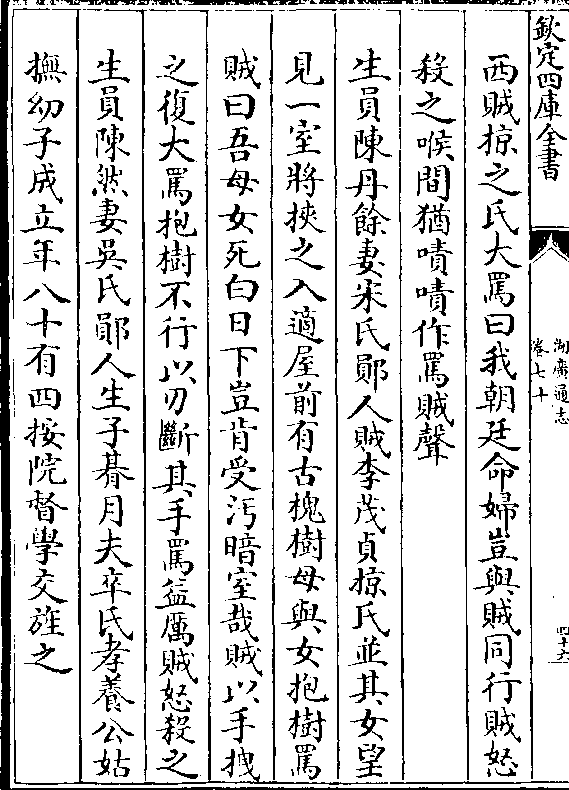 欽定四庫全書
湖廣通志
卷七十
四十六
西賊掠之氏大罵曰我朝廷命婦豈與賊同行賊怒
殺之喉間猶嘖嘖作罵賊聲
生員陳丹餘妻宋氏鄖人賊李茂貞掠氏並其女望
見一室將挾之入適屋前有古槐樹母與女抱樹罵
賊曰吾母女死白日下豈肯受汚暗室哉賊以手拽
之復大罵抱樹不行以刃斷其手罵益厲賊怒殺之
生員陳㷼妻吳氏鄖人生子朞月夫卒氏孝養公姑
撫幼子成立年八十有四按院督學交旌之